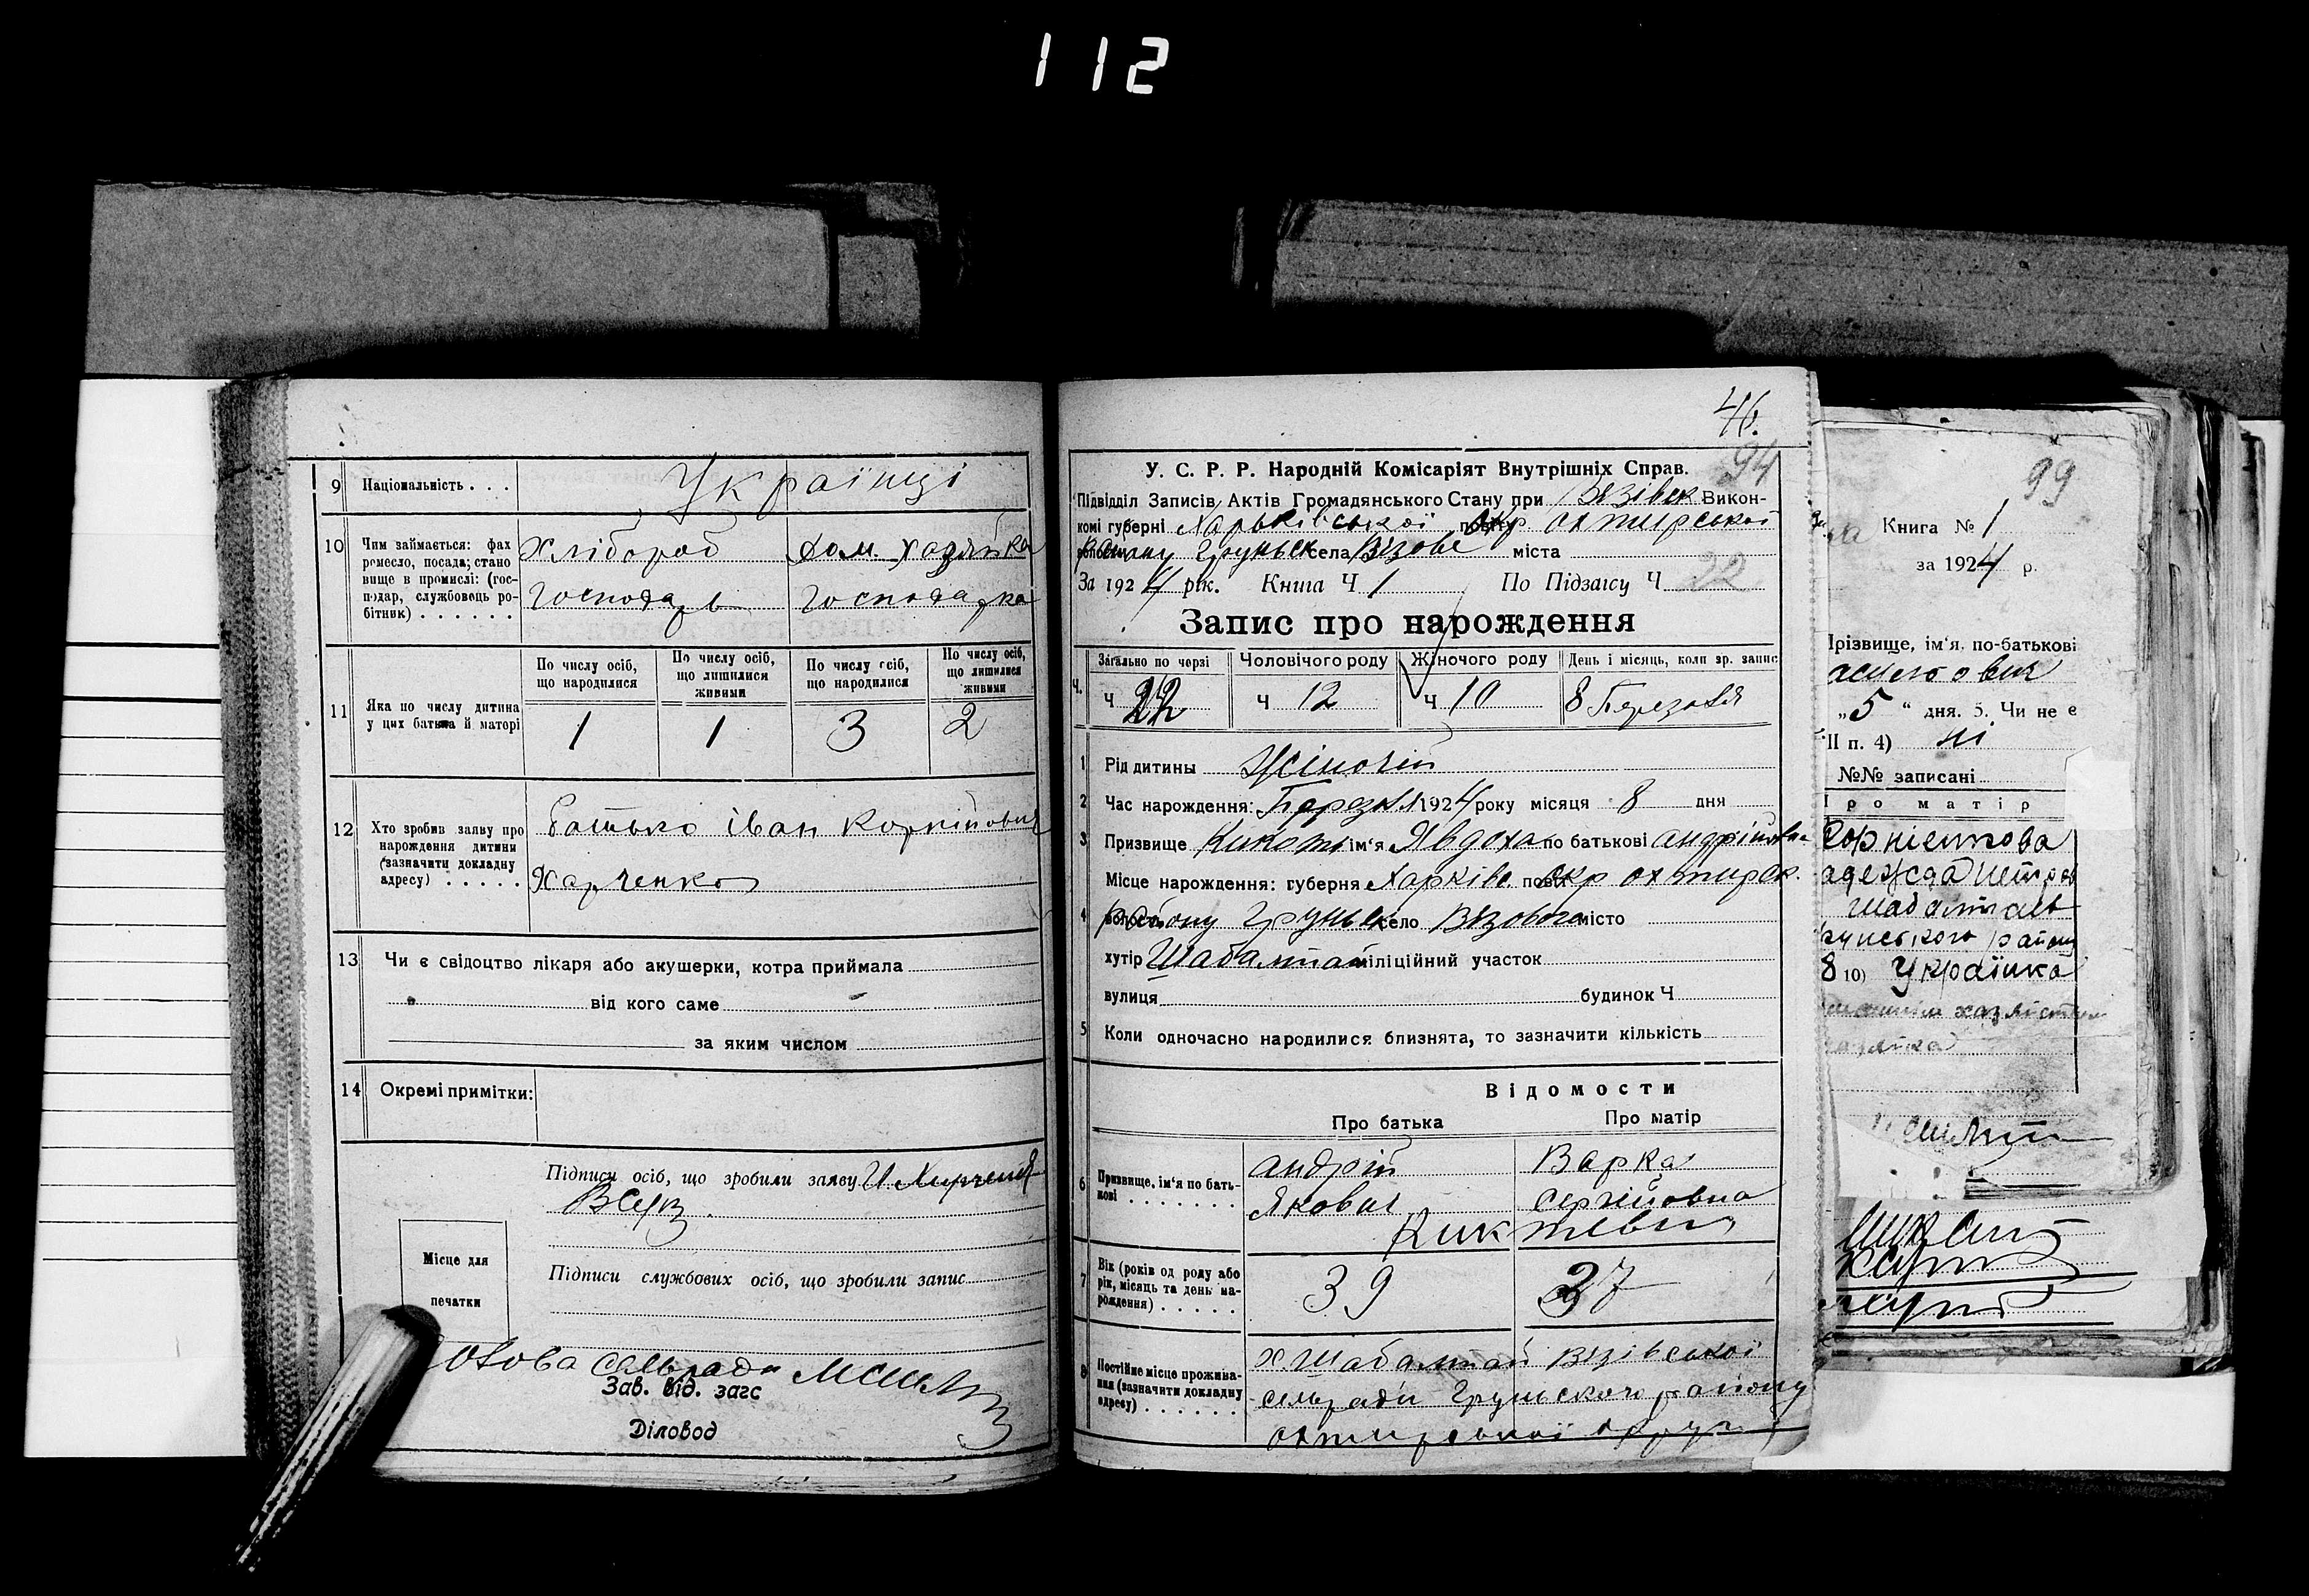 112
9 Національність . . . Українці
10 Чим займається: фах ремесло, посада; становище в промислі: (господар, службовець робітник) . . . . . .
Хлібороб Дом. хазяйка
Господарь Господарка
11 Яка по числу дитина у цих батька й матері
По числу осіб, що народилися
По числу осіб, що лишилися живими
По числу осіб, що народилися
По числу осіб, що лишилися живими
1 1 3 2
12 Хто зробив заяву про нарождення дитини (зазначити докладну адресу) . . . . .
Батько Іван Корнійович
Харченко
13 Чи є свідоцтво лікаря або акушерки, котра приймала
від кого саме
за яким числом
14 Окремі примітки:
Підписи осіб, що зробили заяву И Харченко
Місце для печатки
Підписи службових осіб, що зробили запис
Голова сельради
Зав. від. загс
Діловод
46.
94
У. С. Р. Р. Народній Комісаріят Внутрішніх Справ.
Підвідділ Записів Актів Громадянського Стану при Вязівск Викон-
комі губерні Харьківської окр охтирської
району Груньск села Вязове міста
За 1924 рік. Книга Ч 1 По Підзагсу Ч 22
Запис про нарождення
Загально по черзі Чоловічого роду Жіночого роду День і місяць, коли зр. запис
Ч. Ч 22 Ч 12 Ч 10 8 Березня
1 Рід дитини Жіночій
2 Час нарождення: Березня 1924 року місяця 8 дня
3 Призвище Кикоть ім'я Явдоха по батькові андрійовна
Місце нарождення: губерня Харківс. повіт окр охтирск.
4 району Груньск село Вязового місто
хутір Шабалтай міліційний участок
вулиця будинок Ч
5 Коли одночасно народилися близнята, то зазначити кількість
Відомости
Про батька Про матір
6 Призвище, ім'я по батькові . . . . . . .
андрій Варка
Якович Сергійовна
7 Вік (років од роду або рік, місяць та день народження) . . . . .
39 37
8 Постійне місце проживання (зазначити докладну адресу) . . . . . .
х. Шабалтай Вязівської
сельради Груньского району
охтирської округи
99
Книга № 1
за 1924 р.
Прізвище, ім'я, по-батькові
„5“ дня. 5. Чи не є
II п. 4) ні
№№ записані
Про матір
району
8 10) Українка